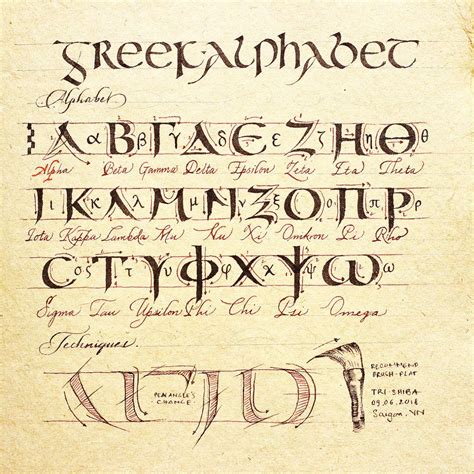 Greek·Alphabet
Alphabet
Α α Β β Γ γ Δ δ Ε ε Ζ ζ Η η Θ θ
Alpha Beta Gamma Delta Epsilon Zeta Eta Theta
Ι Κ Λ Μ Ν Ξ Ο Π Ρ
Iota Kappa Lambda Mu Nu Xi Omikron Pi Rho
C ς Τ τ Υ υ Φ φ Χ χ Ψ ψ Ω
Sigma Tau Upsilon Phi Chi Psi Omega
Techniques.
CHANGE.
RECOMMEND
BRUSH-FLAT
TRI SHIBA
Saigon, VN